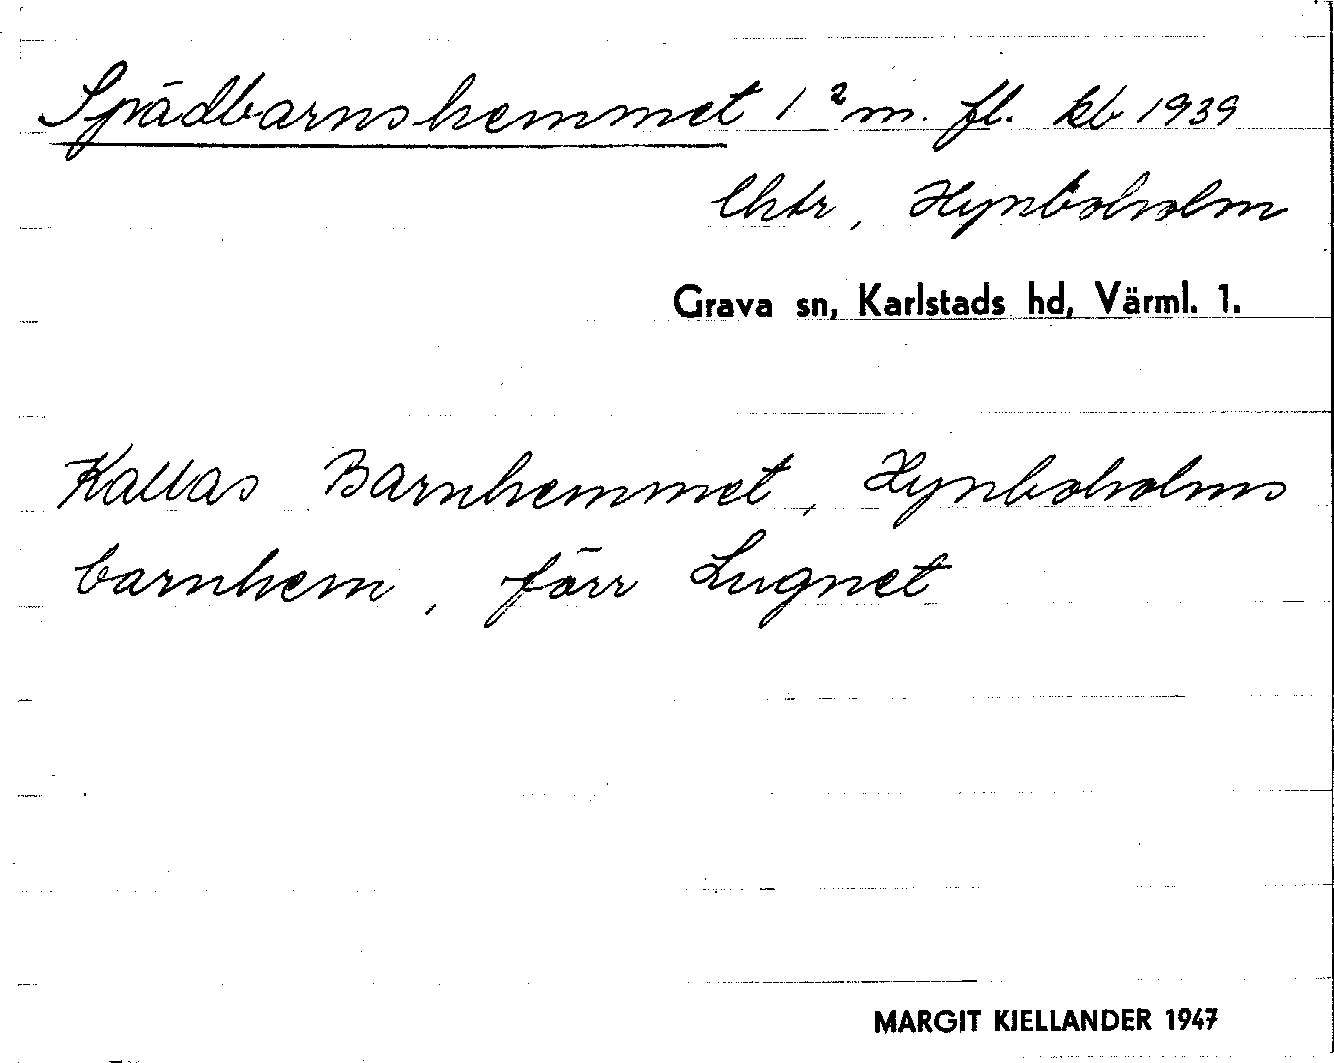 Spädbarnshemmet 1² m. fl. kb 1939
lhtr, Hynboholm
Grava sn, Karlstads hd, Värml. 1.
Kallas Barnhemmet, Hynboholms
barnhem, förr Lugnet
MARGIT KJELLANDER 1947